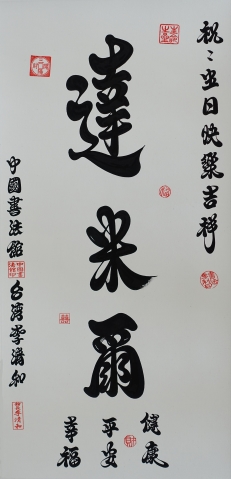 祝 生日快樂吉祥
達米爾
健康
平安
幸福
中國書法館
台灣李清和